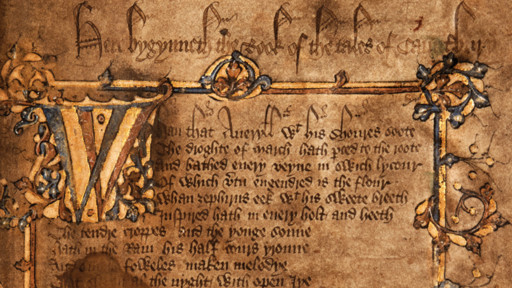 Here bygynneth the Book of the tales of Caunterbury
Whan that Aueryll wt his shoures soote
The droghte of march hath perced to the roote
And bathed euery veyne in swich lycour
Of which vertu engendred is the flour
Whan zephirus eek wt his sweete breeth
Inspired hath in euery holt and heeth
The tendre croppes and the yonge sonne
Hath in the Ram his half cours yronne
And smale foweles maken melodye
al the nyght with open Iye